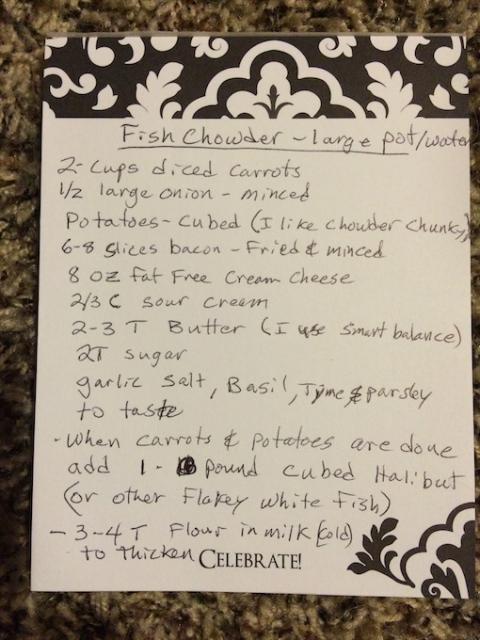 Fish Chowder - large pot/water
2- cups diced carrots
1/2 large onion - minced
Potatoes - cubed (I like chowder chunky)
6-8 slices bacon - Fried & minced
8 oz fat Free Cream Cheese
2/3 C sour cream
2-3 T Butter (I use smart balance)
2T sugar
garlic salt, Basil, Tyme & parsley
to taste
- When carrots & potatoes are done
add 1 - pound cubed Halibut
(or other Flakey white Fish)
- 3-4 T Flour in milk (cold)
to thicken CELEBRATE!